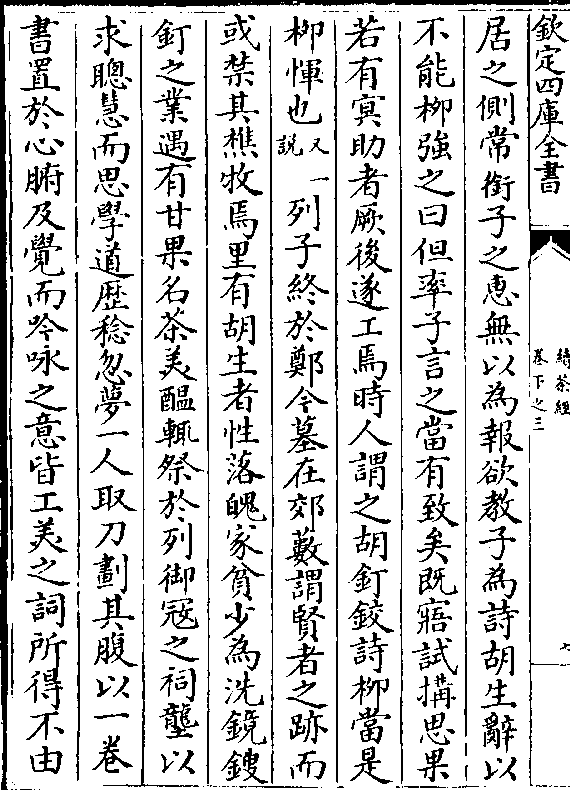 欽定四庫全書
續茶經
卷下之三
七
居之側常銜子之惠無以為報欲教子為詩胡生辭以
不能柳強之曰但率子言之當有致矣既寤試搆思果
若有冥助者厥後遂工焉時人謂之胡釘鉸詩柳當是
柳惲也又一說列子終於鄭今墓在郊藪謂賢者之跡而
或禁其樵牧焉里有胡生者性落魄家貧少為洗鏡鎪
釘之業遇有甘果名茶美醞輒祭於列御寇之祠壟以
求聰慧而思學道歷稔忽夢一人取刀劃其腹以一卷
書置於心腑及覺而吟咏之意皆工美之詞所得不由